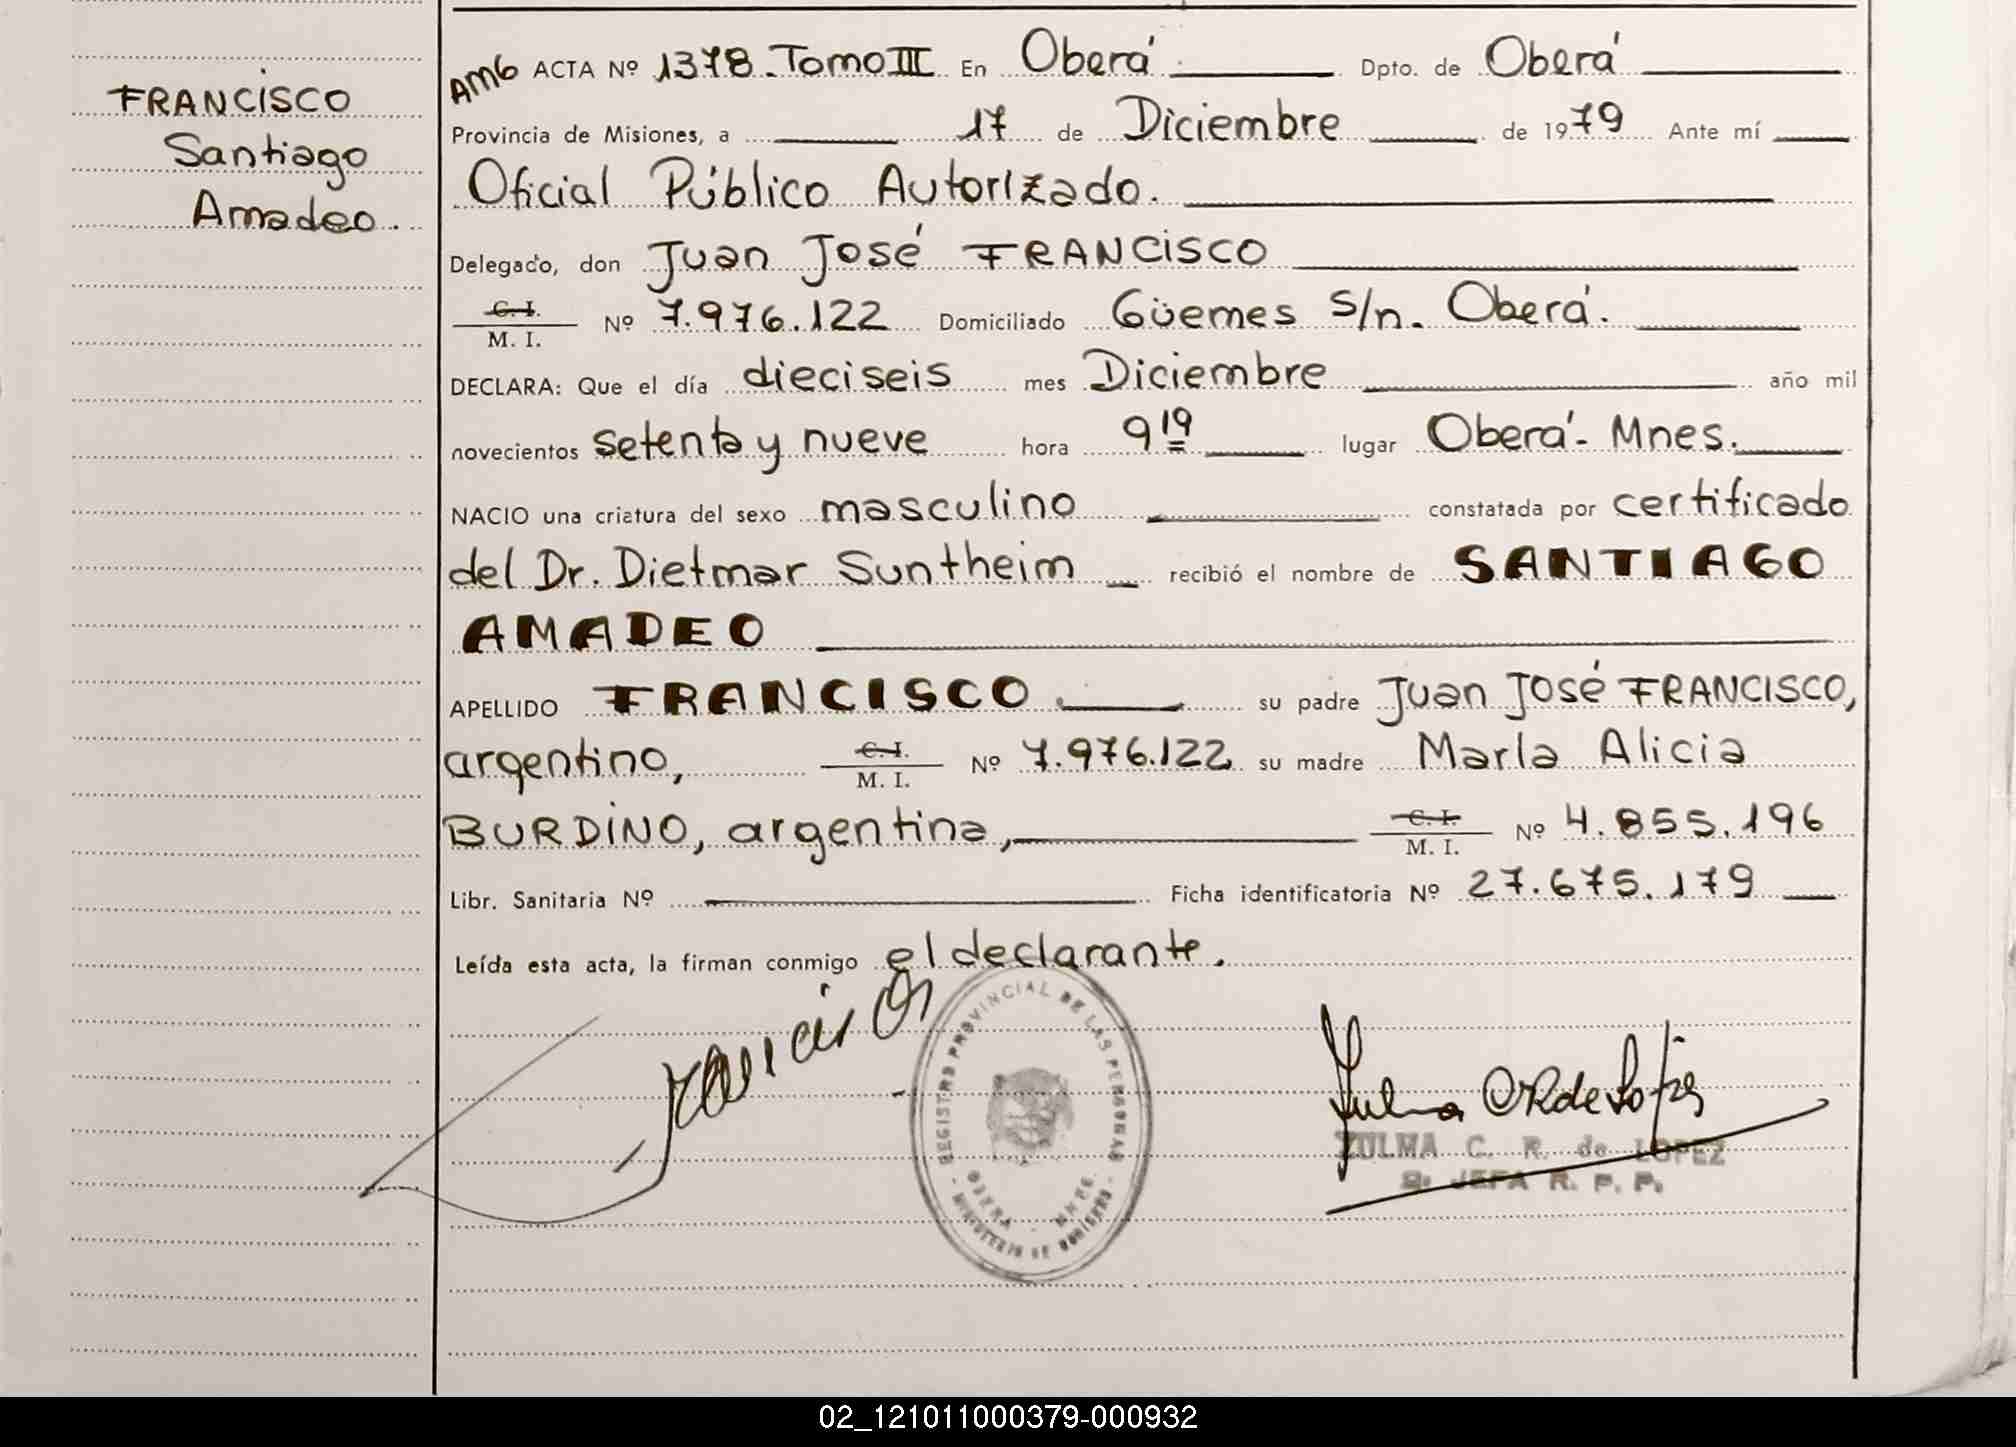 FRANCISCO
Santiago
Amadeo.
AMG ACTA Nº 1378. Tomo III En Oberá Dpto. de Oberá
Provincia de Misiones, a 17 de Diciembre de 1979 Ante mí
Oficial Público Autorizado.
Delegado, don Juan José FRANCISCO
C. I.
M. I. Nº 7.976.122 Domiciliado Güemes S/n. Oberá.
DECLARA: Que el día dieciseis mes Diciembre año mil
novecientos setenta y nueve hora 9 19 lugar Oberá - Mnes.
NACIO una criatura del sexo masculino constatada por certificado
del Dr. Dietmar Suntheim recibió el nombre de SANTIAGO
AMADEO
APELLIDO FRANCISCO su padre Juan José FRANCISCO,
argentino, C. I. M. I. Nº 7.976.122 su madre María Alicia
BURDINO, argentina, C. I. M. I. Nº 4.855.196
Libr. Sanitaria Nº Ficha identificatoria Nº 27.675.179
Leída esta acta, la firman conmigo el declarante.
REGISTRO PROVINCIAL DE LAS PERSONAS
OBERA - MNES.
- MINISTERIO DE GOBIERNO -
ZULMA C. R. de LOPEZ
JEFA R. P. P.
02_121011000379-000932